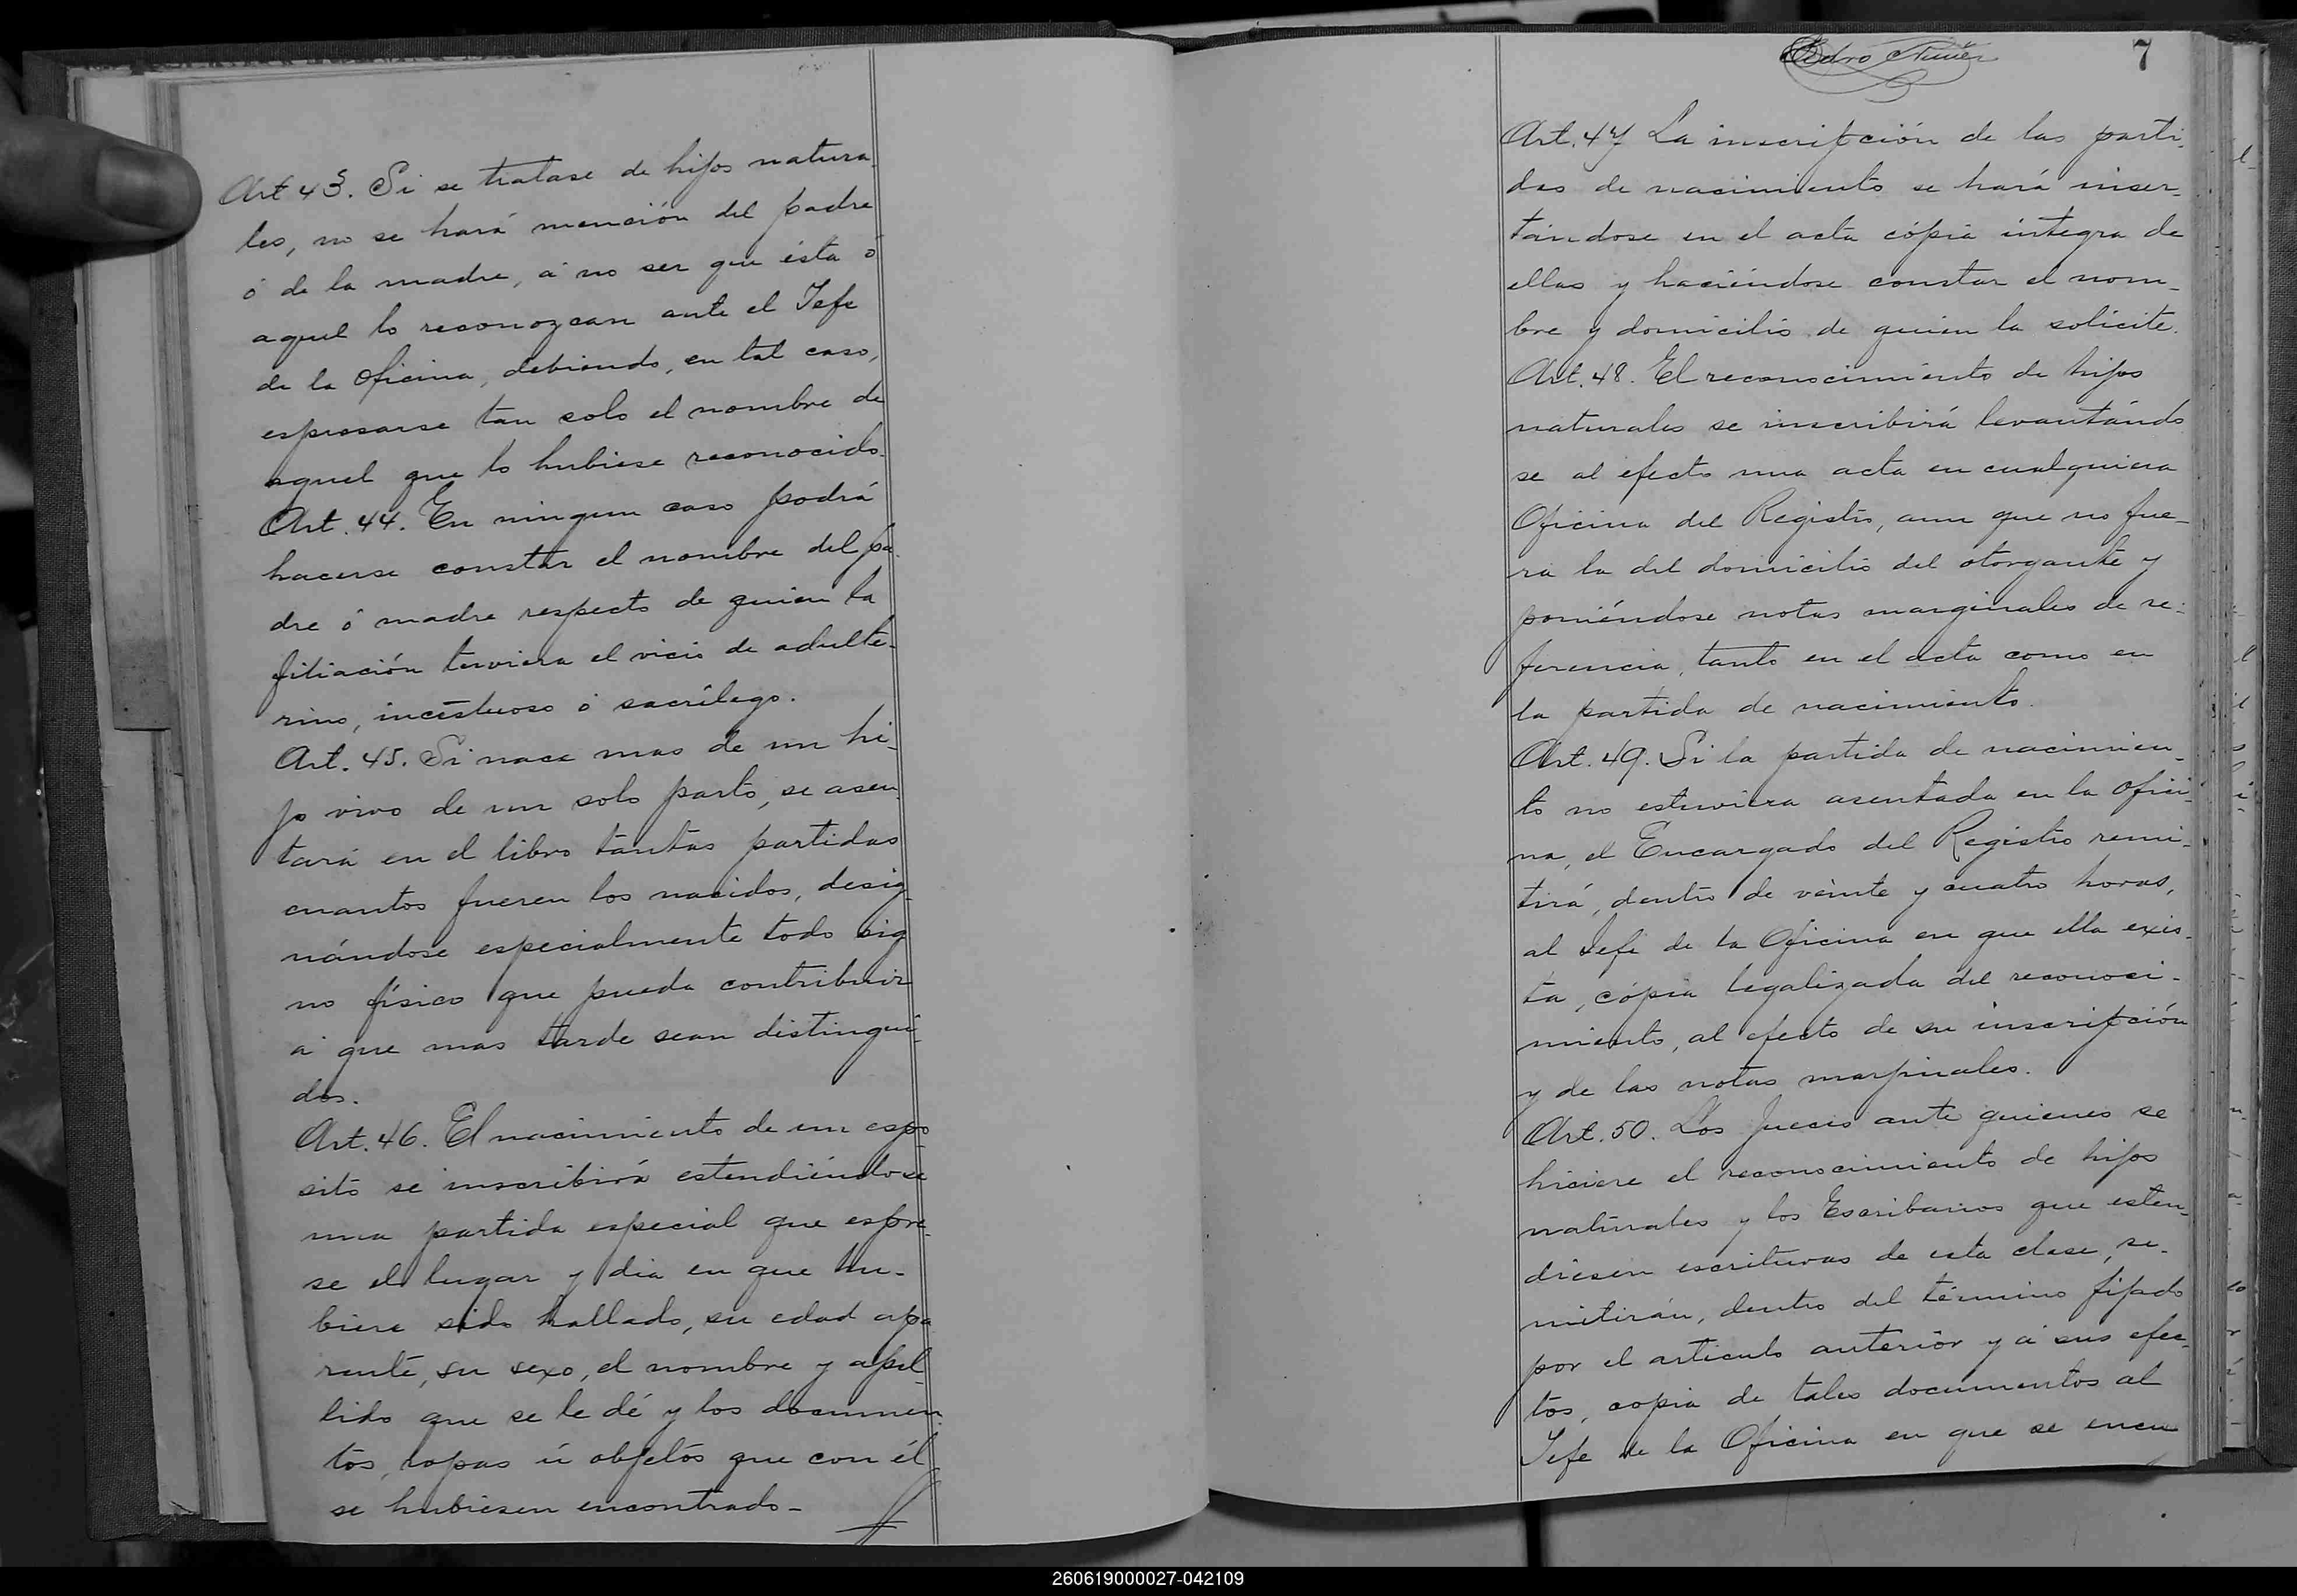 Art 43. Si se tratase de hijos natura-
les, no se hará mención del padre
ó de la madre, á no ser que ésta ó
aquel lo reconozcan ante el Jefe
de la Oficina, debiendo, en tal caso,
espresarse tan solo el nombre de
aquel que lo hubiese reconocido.
Art. 44. En ningun caso podrá
hacerse constar el nombre del pa-
dre ó madre respecto de quien la
filiación tuviera el vicio de adulte-
rino, incestuoso ó sacrílego.
Art. 45. Si nace mas de un hi-
jo vivo de un solo parto, se asen-
tará en el libro tantas partidas
cuantos fueren los nacidos, desig-
nándose especialmente todo sig
no físico que pueda contribuir
á que mas tarde sean distingui-
dos.
Art. 46. El nacimiento de un espó
sito se inscribirá estendiéndose
una partida especial que espre-
se el lugar y dia en que hu-
biere sido hallado, su edad apa
rente, su sexo, el nombre y apel-
lido que se le dé y los documen-
tos, ropas ú objetos que con él
se hubiesen encontrado-
Pedro Nuñez
7
Art. 47 La inscripción de las parti-
das de nacimiento se hará inser-
tándose en el acta cópia íntegra de
ellas y haciéndose constar el nom-
bre y domicilio de quien la solicite.
Art. 48. El reconocimiento de hijos
naturales se inscribirá levantándo
se al efecto una acta en cualquiera
Oficina del Registro, aun que no fue-
ra la del domicilio del otorgante y
poniéndose notas marginales de re-
ferencia, tanto en el acta como en
la partida de nacimiento.
Art. 49. Si la partida de nacimien-
to no estuviera asentada en la Ofici-
na, el Encargado del Registro remi-
tirá, dentro de veinte y cuatro horas,
al Jefe de la Oficina en que ella exis-
ta, cópia legalizada del reconoci-
miento, al efecto de su inscripción
y de las notas marjinales.
Art. 50. Los Jueces ante quienes se
hiciere el reconocimiento de hijos
naturales y los Escribanos que esten-
diesen escrituras de esta clase, re-
mitirán, dentro del término fijado
por el articulo anterior y á sus efec-
tos, copia de tales documentos al
Jefe de la Oficina en que se encu
260619000027-042109